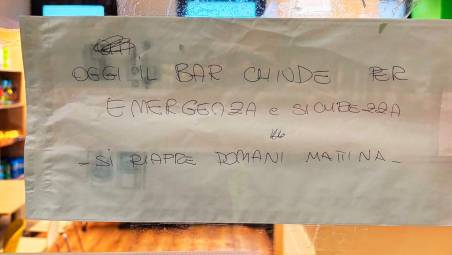 OGGI IL BAR CHIUDE PER
EMERGENZA e SICUREZZA
- SI RIAPRE DOMANI MATTINA -